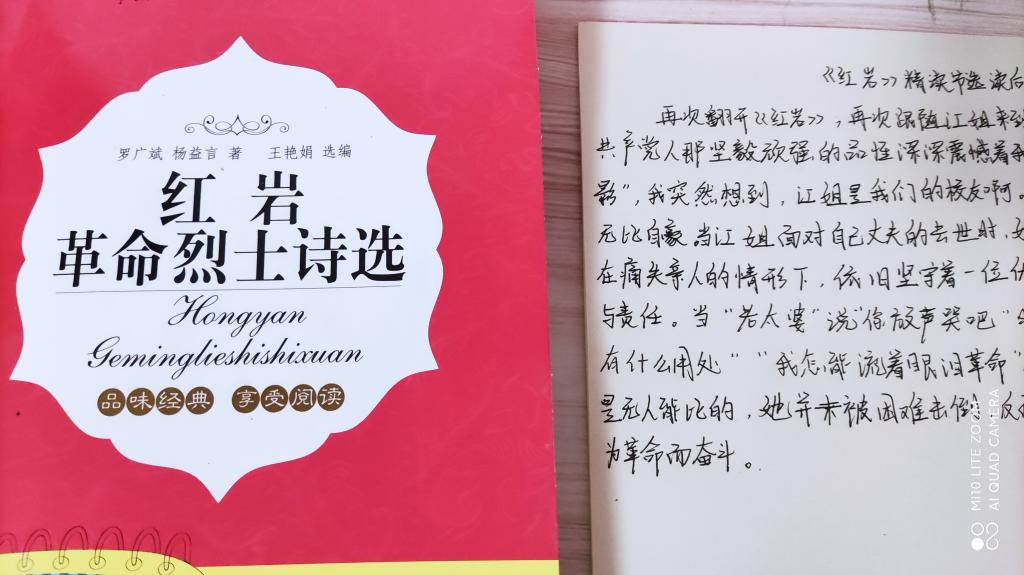 罗广斌 杨益言 著 王艳娟 选编
红岩
革命烈士诗选
Hongyan
Geminglieshishixuan
品味经典 享受阅读
《红岩》精读节选读后
再次翻开《红岩》，再次跟随江姐来到
共产党人那坚毅顽强的品性深深震憾着我
影”，我突然想到，江姐是我们的校友啊。
无比自豪当江姐面对自己丈夫的去世时，
在痛失亲人的情形下，依旧坚守着一位
与责任。当“老太婆”说“你放声哭吧”
有什么用处”“我怎能流着眼泪革命”
是无人能比的，她并未被困难击倒，反
为革命而奋斗。
MI 10 LITE ZOOM
AI QUAD CAMERA